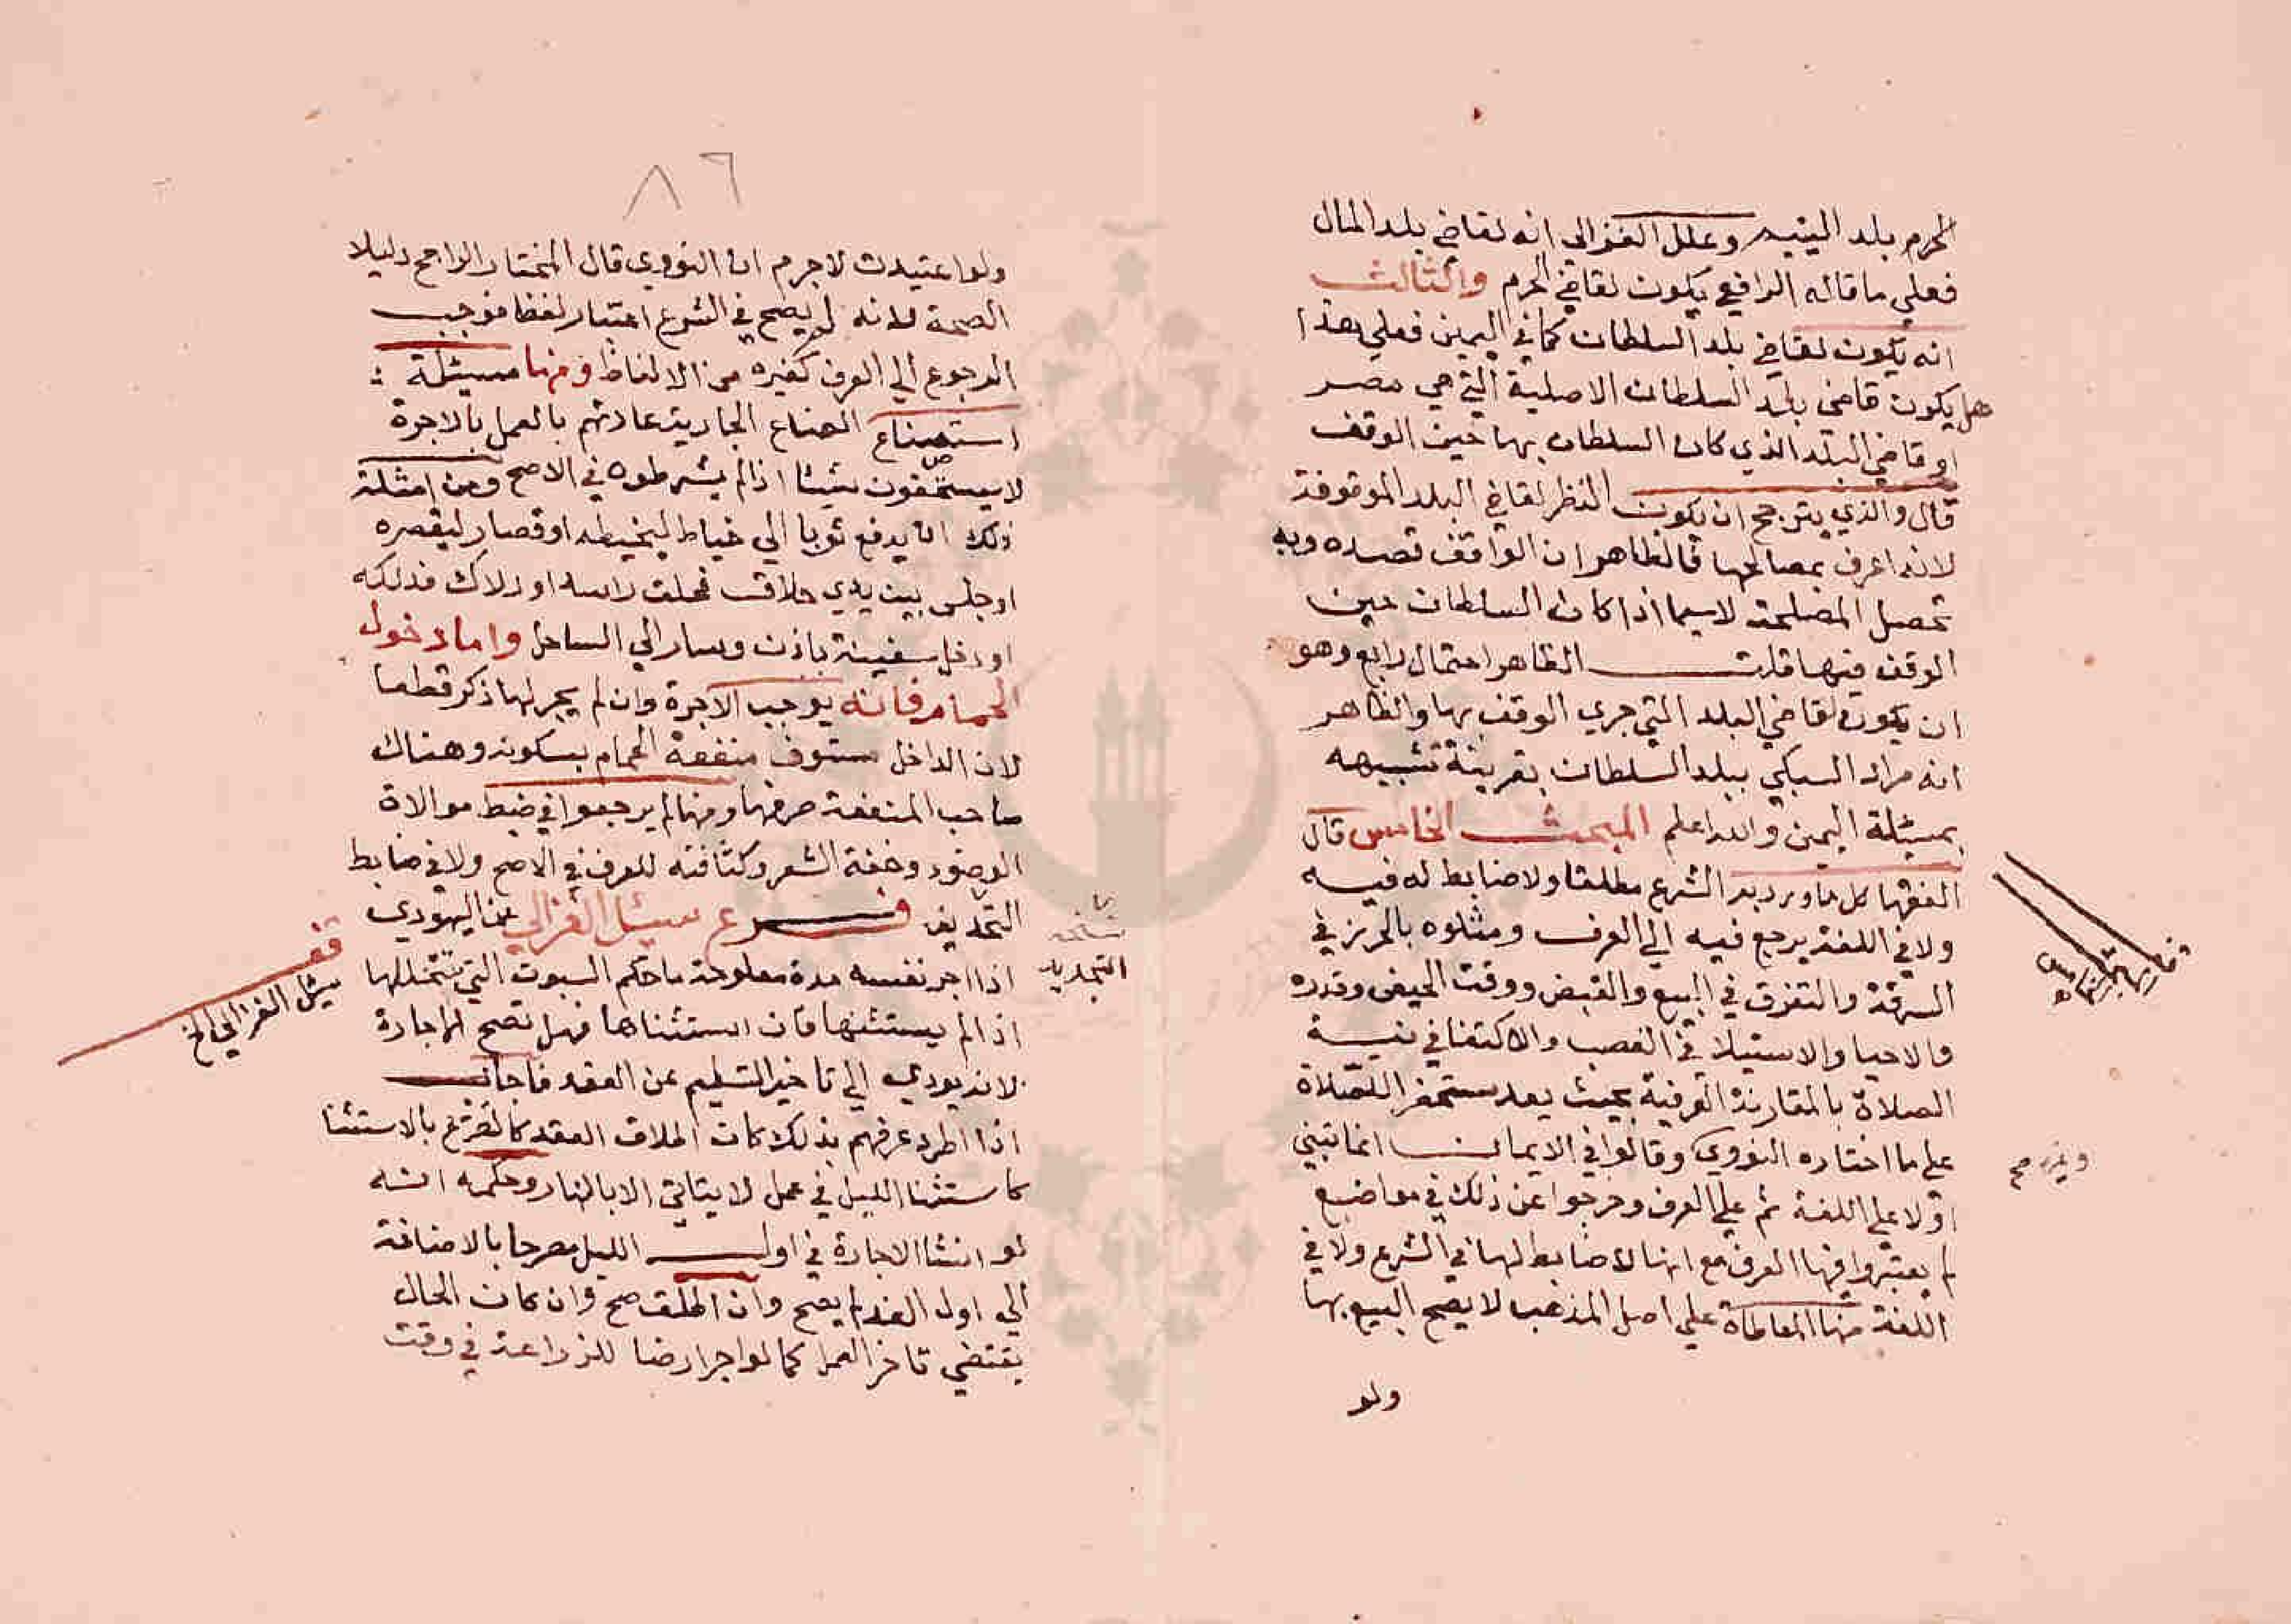 الحرم بلد اليتيم وعلل الغزالي انه لقاضي بلد المال
فعلى ما قاله الرافعي يكون لقاضي الحرم والثالث
انه يكون لقاضي بلد السلطان كما في اليمن فعلى هذا
هل يكون قاضي بلد السلطان الاصلية التي هي مصر
او قاضي البلد الذي كان السلطان بها حين الوقف
قال والذي يترجح ان يكون النظر لقاضي البلد الموقوفة
لانه اعرف بمصالحها فالظاهر ان الواقف قصده وبه
تحصل المصلحة لاسيما اذا كان السلطان حين
الوقف فيها قلت الظاهر احتمال رابع وهو
ان يكون لقاضي البلد التي جري الوقف بها والظاهر
انه مراد السبكي ببلد السلطان بقرينة تشبيهه
بمسئلة اليمن والله اعلم المبحث الخامس قال
الفقها كل ما ورد به الشرع مطلقا ولا ضابط له فيه
ولا في اللغة يرجع فيه الي العرف ومثلوه بالحرز في
السرقة والتفرق في البيع والقبض ووقت الحيض وقدره
والاحيا والاستيلا في الغصب والاكتفا في نية
الصلاة بالمقارنة العرفية بحيث يعد مستحضرا للصلاة
على ما اختاره النووي وقالوا في الايمان انها تبني
اولا علي اللغة ثم علي العرف وخرجوا عن ذلك في مواضع
لم يعتبروا فيها العرف مع انها لا ضابط لها في الشرع ولا في
اللغة منها المعاطاة علي اصل المذهب لا يصح البيع بها
ولو
قف
المبحث الخامس
٨٦
ولو اعتيدت لا جرم ان النووي قال المختار الراجح دليلا
الصحة لانه لم يصح في الشرع اعتبار لفظ فوجب
الرجوع الي العرف كغيره من الالفاظ ومنها مسئلة
استصناع الصناع الجارية عادتهم بالعمل بالاجرة
لا يستحقون شيئا اذا لم يشرطوه في الاصح ومن امثلة
ذلك ان يدفع ثوبا الي خياط ليخيطه او قصار ليقصره
او جلس بين يدي حلاق فحلق راسه او دلاك فدلكه
او دخل سفينة باذن وسار الي الساحل واما دخول
الحمام فانه يوجب الاجرة وان لم يجر لها ذكر قطعا
لان الداخل مستوف منفعة الحمام بسكونه وهناك
صاحب المنفعة صرفها ومنها لم يرجعوا في ضبط موالاة
الوضوء وخفة الشعر وكثافته للعرف في الاصح ولا في ضابط
التحديد فرع سئل الغزالي عن اليهودي
اذا اجر نفسه مدة معلومة ما حكم السبوت التي تتخللها
اذا لم يستثنها فان استثناها فهل تصح الاجارة
لانه يودي الي تاخير التسليم عن العقد فاجاب
اذا اطرد عرفهم بذلك كان اطلاق العقد كالتصريح بالاستثنا
كاستثنا الليل في عمل لا يتاتي الا بالنهار وحكمه انه
لو انشا الاجارة في اول الليل مصرحا بالاضافة
الي اول الغد لم يصح وان اطلق صح وان كان الحال
يقتضي تاخر العمل كما لو اجر ارضا للزراعة في وقت
التجديد
قف
سئل الغزالي الخ